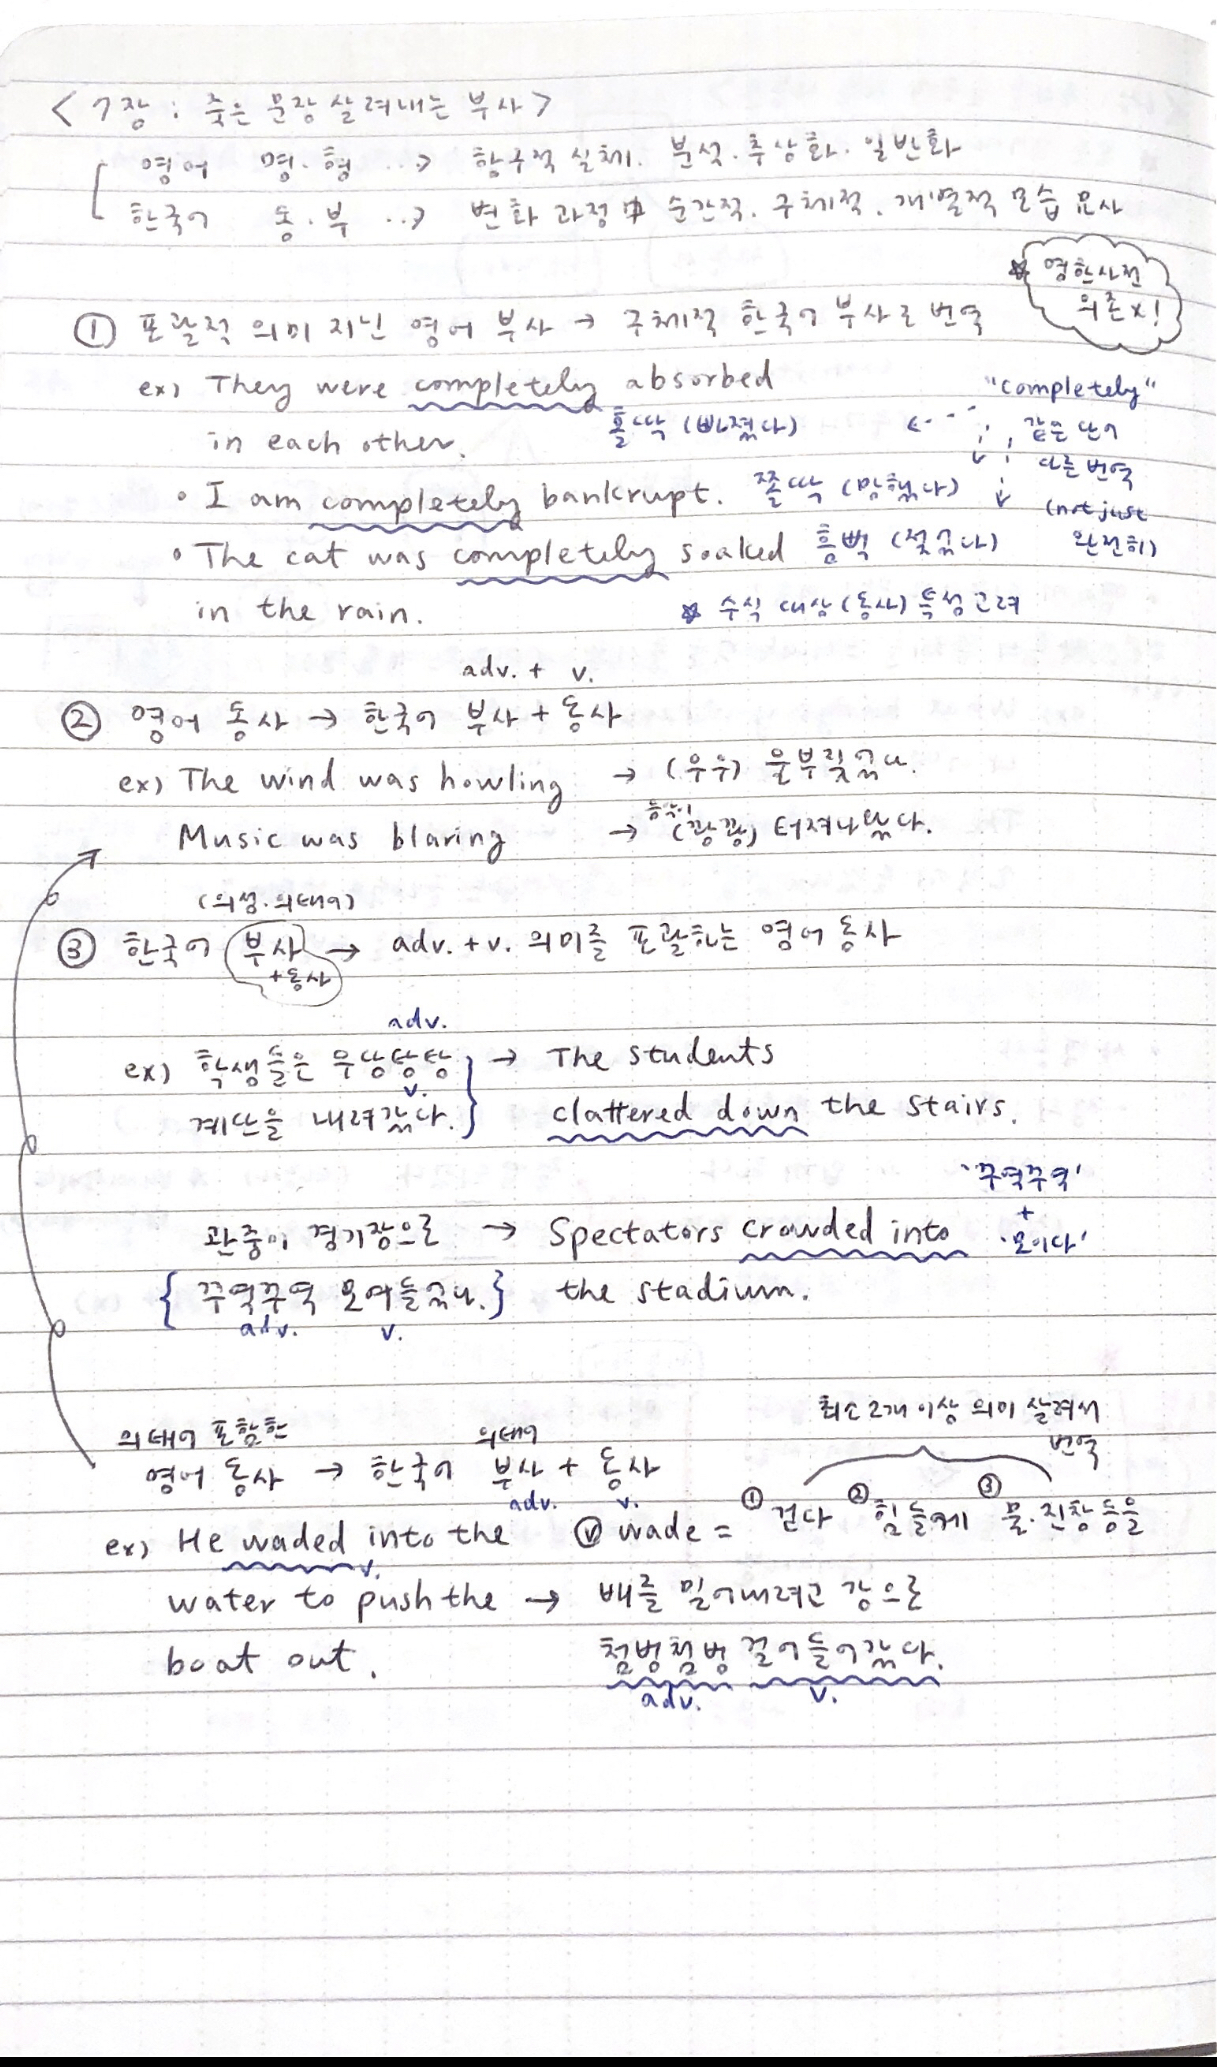 <7장 : 죽은 문장 살려내는 부사>
영어 명·형 ..> 항구적 실체. 분석·추상화·일반화
한국어 동·부 ..> 변화 과정 中 순간적. 구체적. 개별적 모습 묘사
☆ 영한사전
의존 x!
① 포괄적 의미 지닌 영어 부사 → 구체적 한국어 부사로 번역
ex) They were completely absorbed
in each other.
홀딱 (빠졌다)
"completely"
같은 단어
다른 번역
(not just
완전히)
• I am completely bankrupt. 쫄딱 (망했다)
• The cat was completely soaked 흠뻑 (젖었다)
in the rain.
☆ 수식 대상 (동사) 특성 고려
adv. + v.
② 영어 동사 → 한국어 부사 + 동사
ex) The wind was howling → (우우) 울부짖었다.
Music was blaring → (쾅쾅) 터져나왔다.
(의성·의태어)
③ 한국어 부사 → adv. + v. 의미를 포괄하는 영어 동사
+동사
adv.
ex) 학생들은 우당탕탕 → The students
v.
계단을 내려갔다. clattered down the stairs.
'꾸역꾸역'
+
'모이다'
관중이 경기장으로 → Spectators crowded into
{꾸역꾸역 모여들었다.} the stadium.
adv. v.
최소 2개 이상 의미 살려서
번역
의태어 포함한 의태어
영어 동사 → 한국어 부사 + 동사
adv. v.
① 걷다 ② 힘들게 ③ 물·진창 등을
ex) He waded into the ⓥ wade =
v.
water to push the → 배를 밀어내려고 강으로
boat out. 첨벙첨벙 걸어들어갔다.
adv. v.